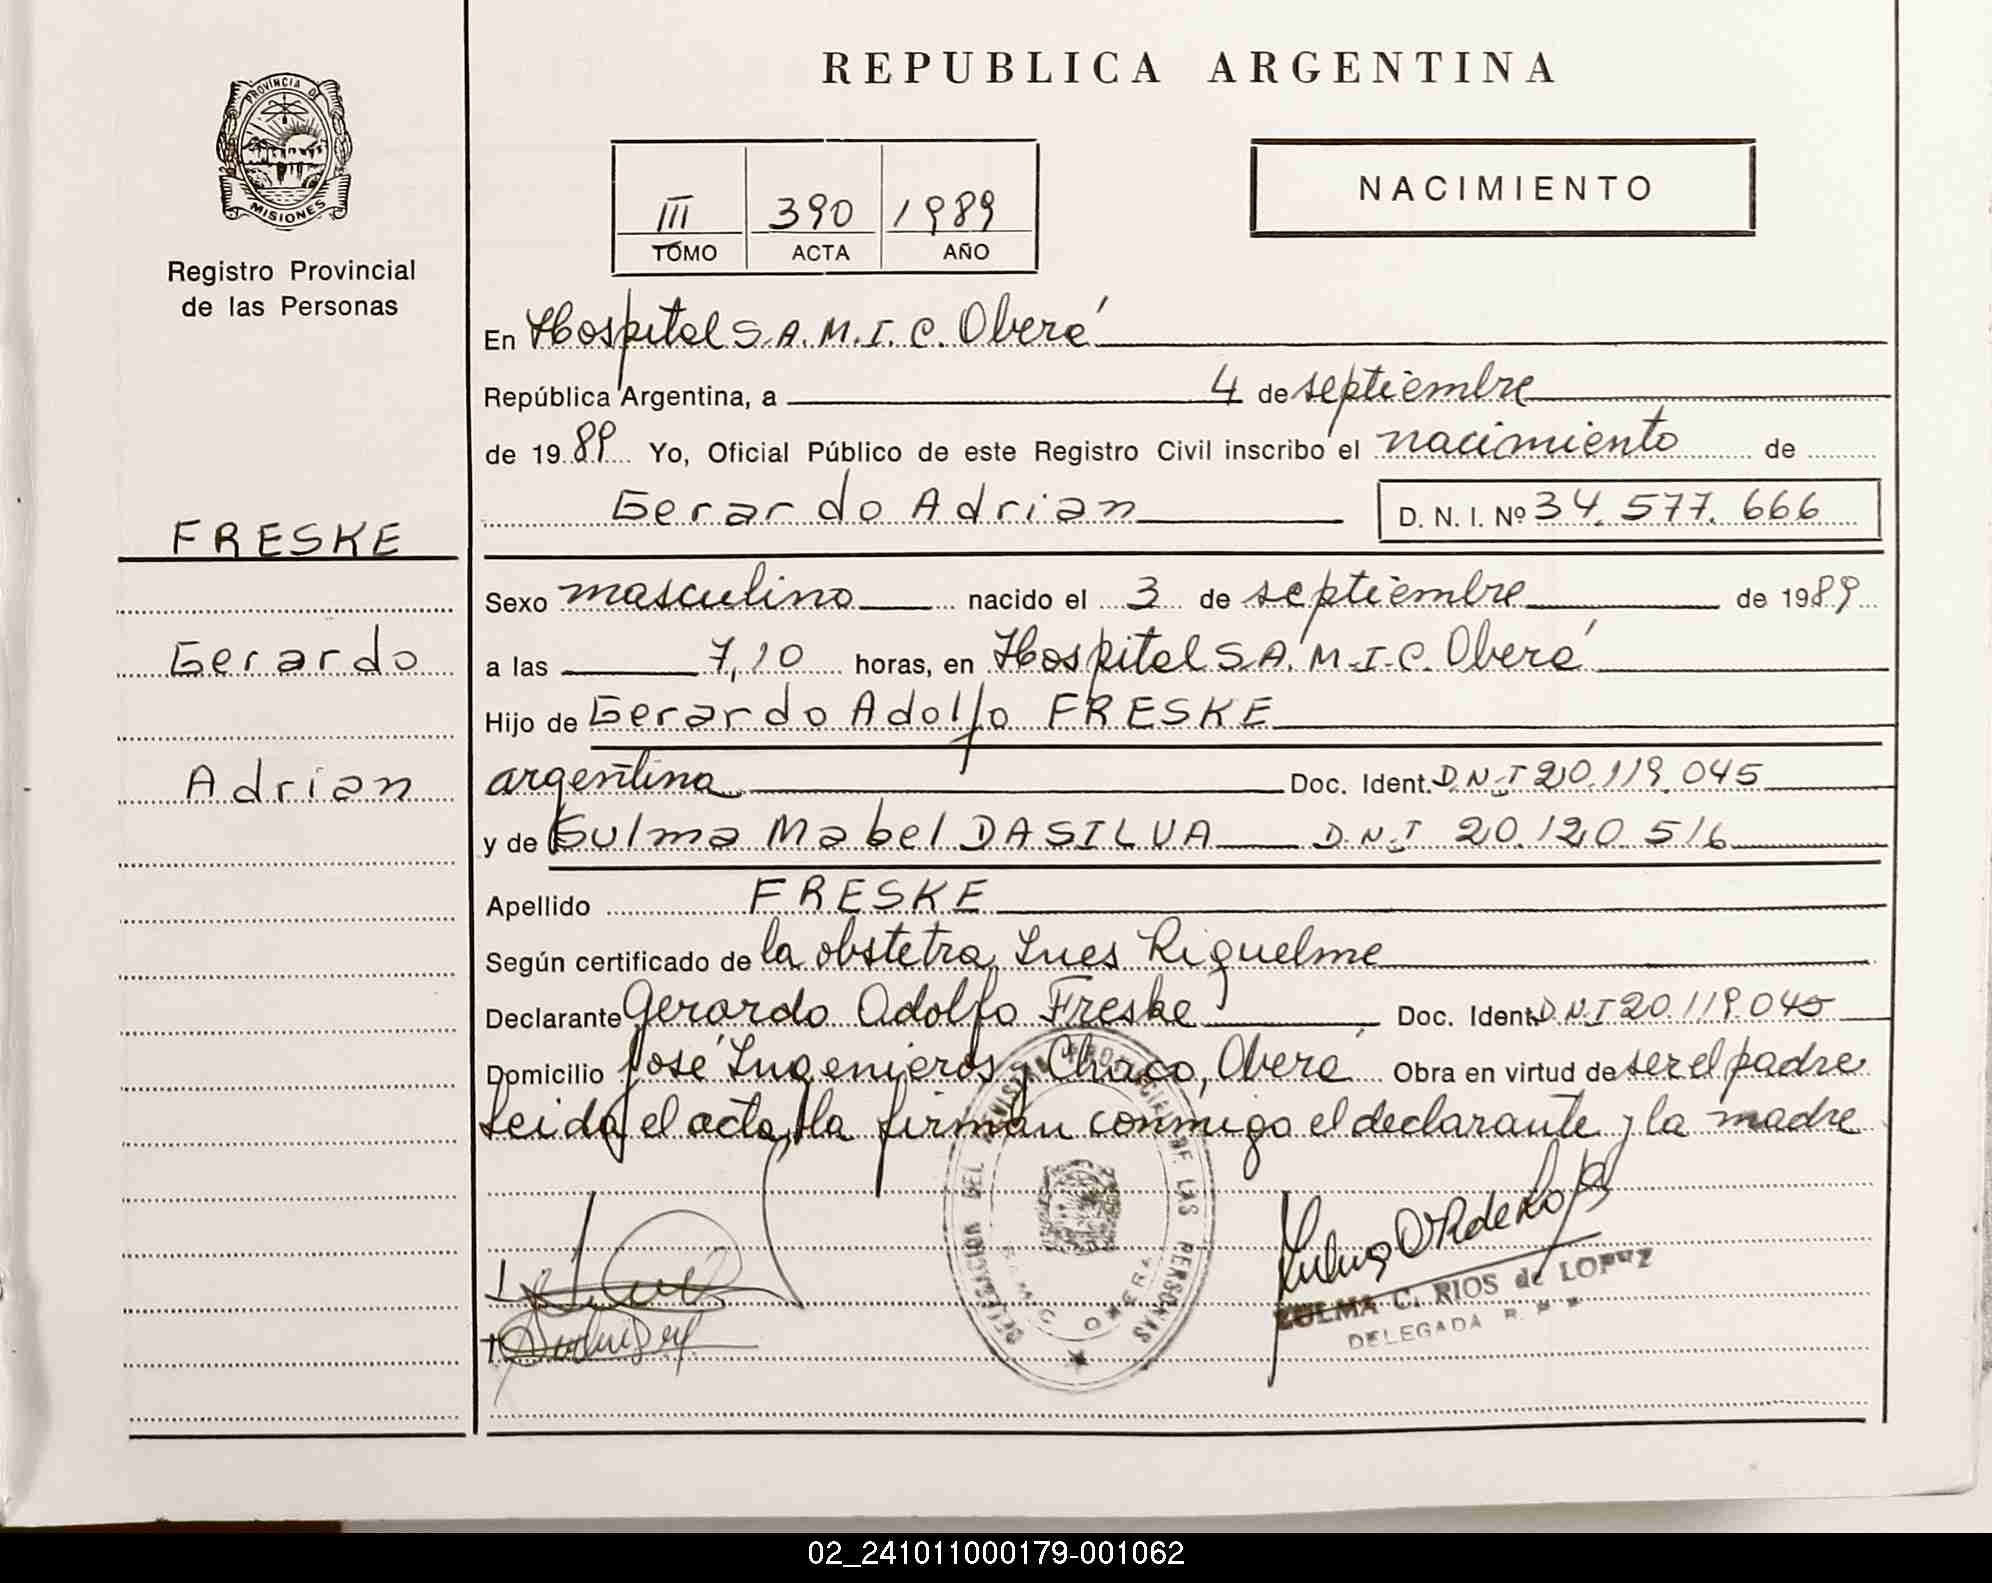 REPUBLICA ARGENTINA
PROVINCIA DE
MISIONES
Registro Provincial
de las Personas
III 390 1989
TOMO ACTA AÑO
NACIMIENTO
En Hospital S.A.M.I.C. Oberá
República Argentina, a 4 de septiembre
de 1989 Yo, Oficial Público de este Registro Civil inscribo el nacimiento de
Gerardo Adrian D. N. I. Nº 34.577.666
FRESKE
Gerardo
Adrian
Sexo masculino nacido el 3 de septiembre de 1989
a las 7,10 horas, en Hospital S.A.M.I.C. Oberá
Hijo de Gerardo Adolfo FRESKE
argentina Doc. Ident. D.N.I 20.119.045
y de Gulma Mabel DASILVA D.N.I 20.120.516
Apellido FRESKE
Según certificado de la obstetra Ines Riquelme
Declarante Gerardo Adolfo Freske Doc. Ident. D.N.I 20.119.045
Domicilio José Ingenieros y Chaco, Oberá Obra en virtud de ser el padre
Leida el acta, la firman conmigo el declarante y la madre
DELEGACION DEL REGISTRO PROVINCIAL DE LAS PERSONAS
OBERA
ZULMA C. RIOS de LOPEZ
DELEGADA
02_241011000179-001062